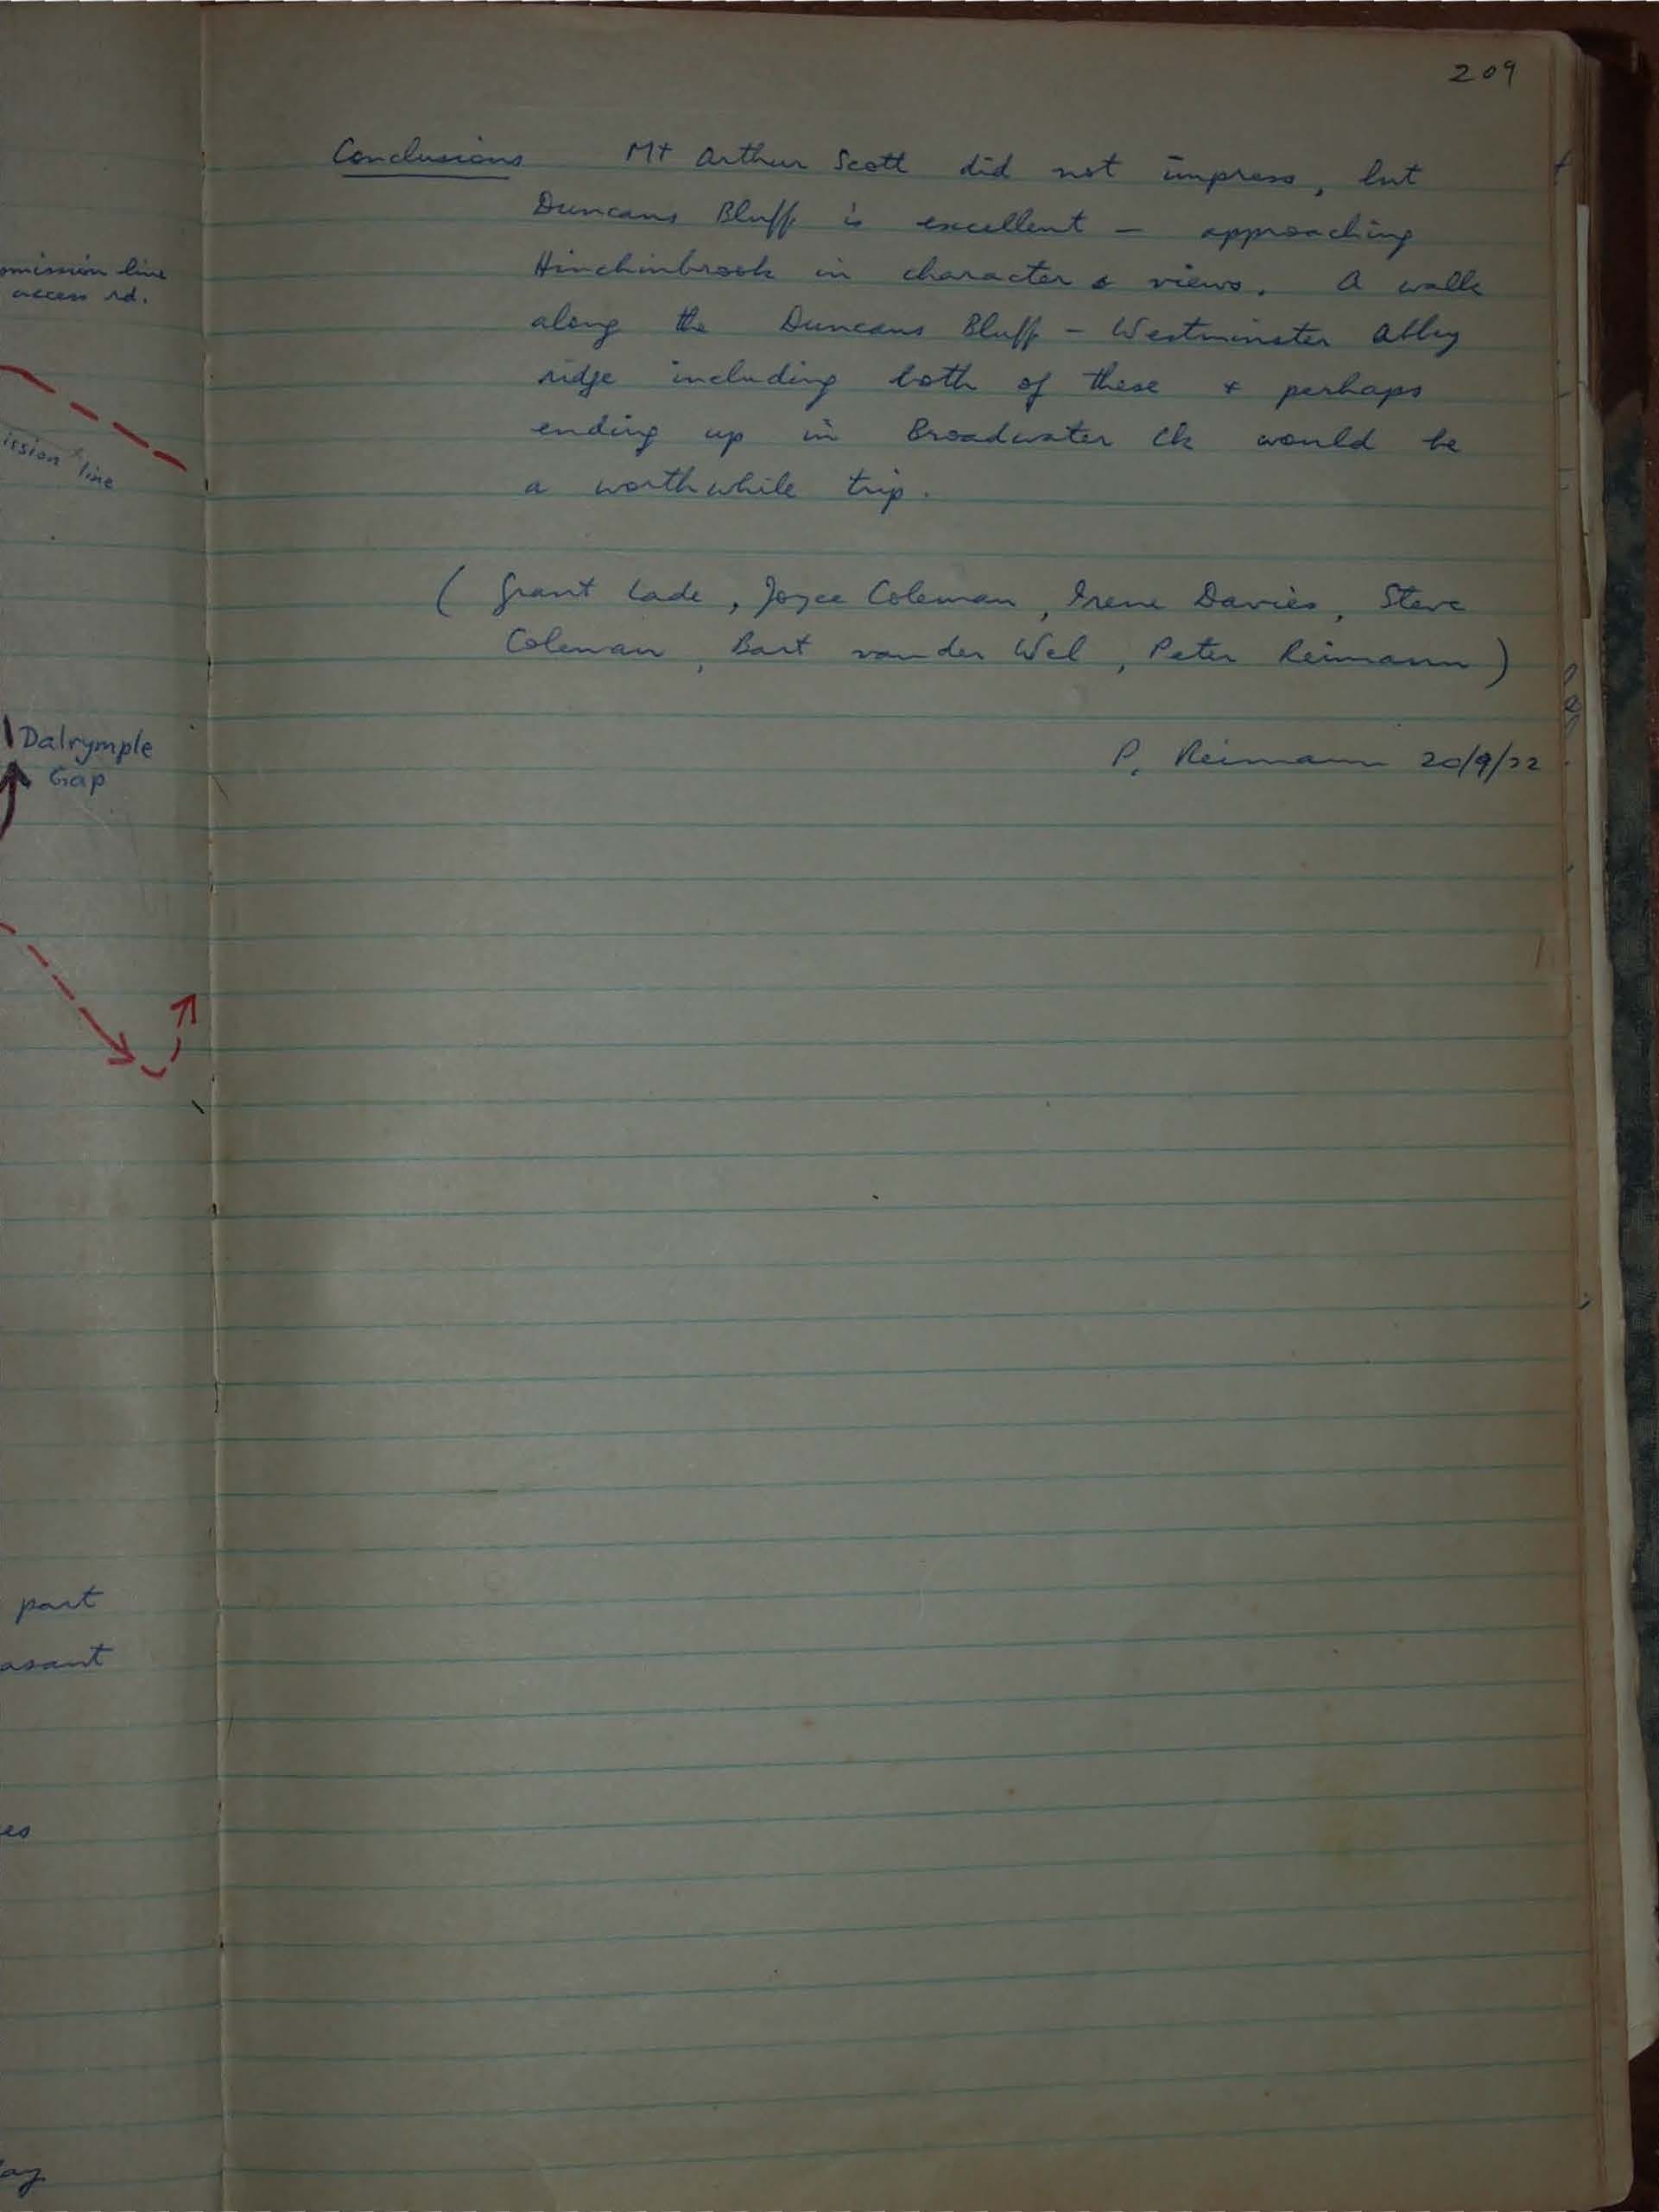 omission line
access rd.
ission line
Dalrymple
Gap
part
asant
es
ay
209
Conclusions Mt Arthur Scott did not impress, but
Duncans Bluff is excellent - approaching
Hinchinbrook in character & views. A walk
along the Duncans Bluff - Westminster Abbey
ridge including both of these & perhaps
ending up in Broadwater Ck would be
a worthwhile trip.
( Grant Lade, Joyce Coleman, Irene Davies, Steve
Coleman, Bart van der Wel, Peter Reimann )
P. Reimann 20/9/72